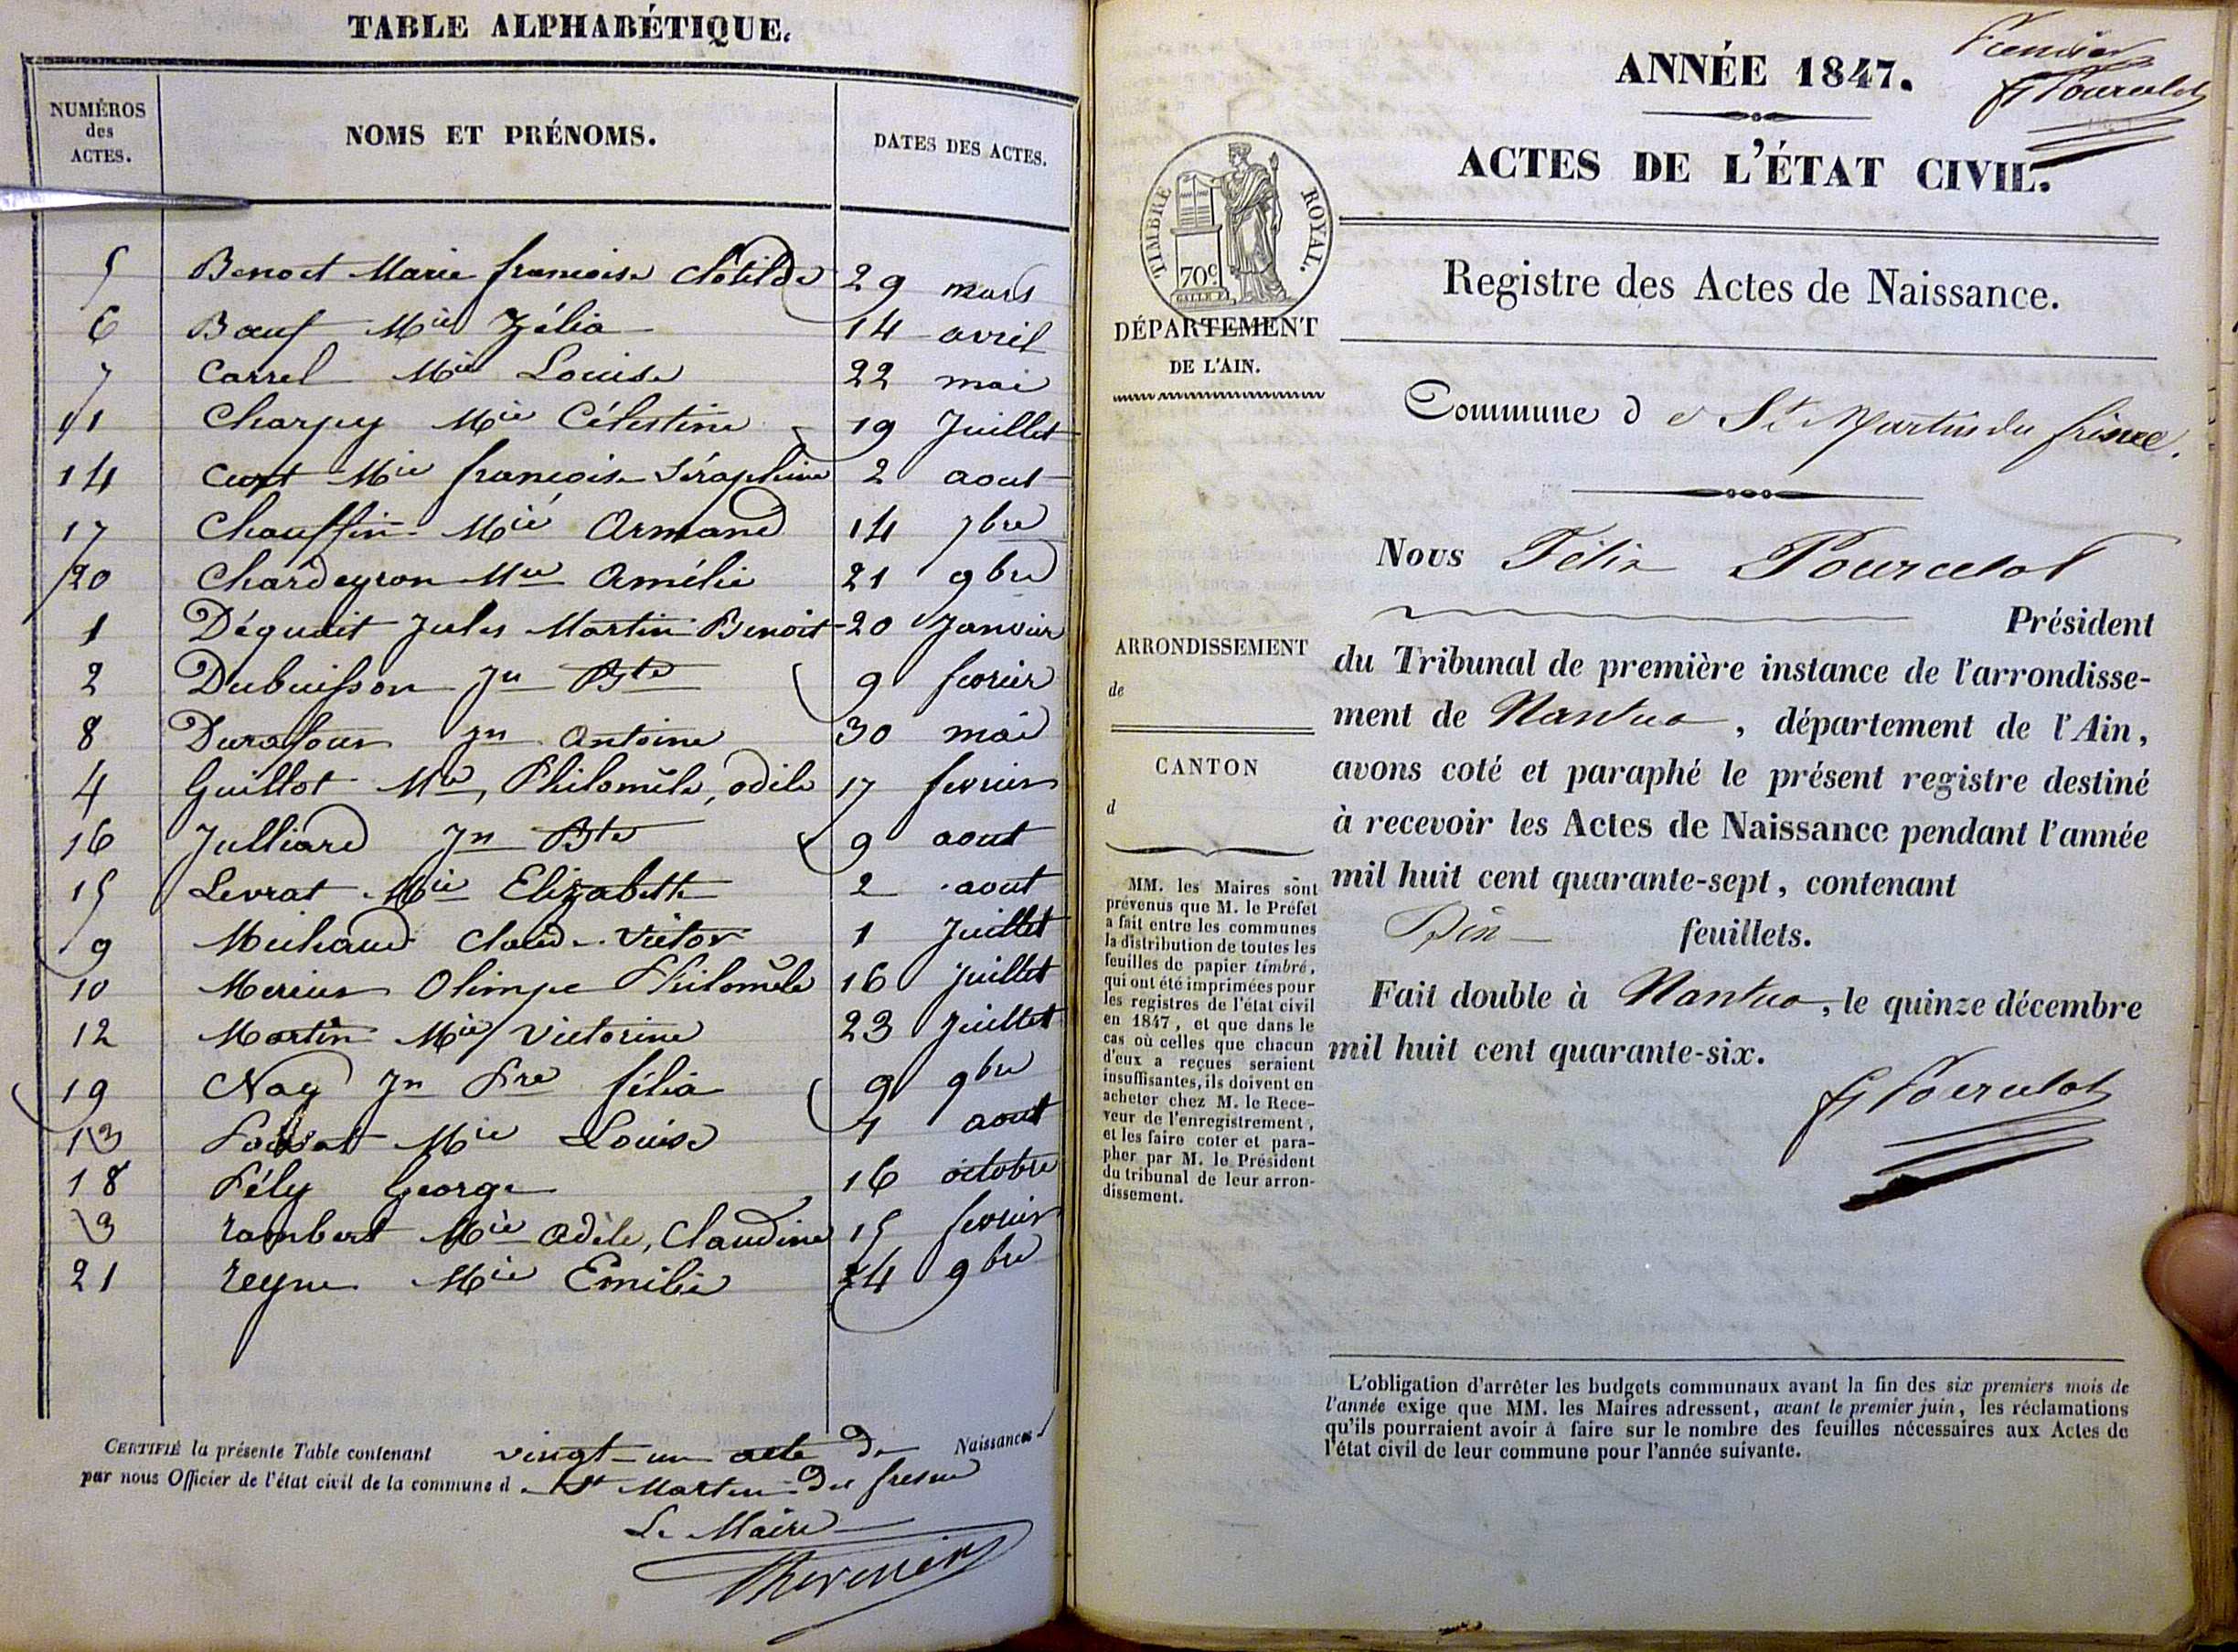 TABLE ALPHABÉTIQUE.
NUMÉROS des ACTES. NOMS ET PRÉNOMS. DATES DES ACTES.
5 Benoct Marie francoise Clotilde 29 mars
6 Bœuf Mie Zélia 14 avril
7 Carrel Mie Louise 22 mai
11 Charpy Mie Célestine 19 Juillet
14 Curt Mie francoise Séraphine 2 aout
17 Chauffin Mie Armand 14 7bre
20 Chardeyron Mie Amélie 21 9bre
1 Déguait Jules Martin Benoit 20 Janvier
2 Dubuisson Jn Bte 9 fevrier
8 Durafour Jn Antoine 30 mai
4 Guillot Mie, Philomèle, odile 17 fevrier
16 Julliard Jn Bte 9 aout
15 Levrat Mie Elizabeth 2 aout
9 Michaud Claude Victor 1 Juillet
10 Mercier Olimpe Philomèle 16 Juillet
12 Martin Mie Victorine 23 Juillet
19 Nay Jn Pre félix 9 9bre
13 Mie Louise aout
18 Pély George 16 octobre
3 rambert Mie adèle, Claudine 15 fevrier
21 reyne Mie Emilie 24 9bre
CERTIFIÉ la présente Table contenant vingt-un acte de Naissances
par nous Officier de l'état civil de la commune d St Martin du fresne
Le Maire
ANNÉE 1847.
F Pourcelot
ACTES DE L'ÉTAT CIVIL.
TIMBRE ROYAL.
70c.
Registre des Actes de Naissance.
DÉPARTEMENT
DE L'AIN.
Commune d e St Martin du frisne.
ARRONDISSEMENT
de
CANTON
d
MM. les Maires sont
prévenus que M. le Préfet
a fait entre les communes
la distribution de toutes les
feuilles de papier timbré,
qui ont été imprimées pour
les registres de l'état civil
en 1847, et que dans le
cas où celles que chacun
d'eux a reçues seraient
insuffisantes, ils doivent en
acheter chez M. le Rece-
veur de l'enregistrement,
et les faire coter et para-
pher par M. le Président
du tribunal de leur arron-
dissement.
Nous Félix Pourcelot
Président
du Tribunal de première instance de l'arrondisse-
ment de Nantua, département de l'Ain,
avons coté et paraphé le présent registre destiné
à recevoir les Actes de Naissance pendant l'année
mil huit cent quarante-sept, contenant
feuillets.
Fait double à Nantua, le quinze décembre
mil huit cent quarante-six.
F Pourcelot
L'obligation d'arrêter les budgets communaux avant la fin des six premiers mois de
l'année exige que MM. les Maires adressent, avant le premier juin, les réclamations
qu'ils pourraient avoir à faire sur le nombre des feuilles nécessaires aux Actes de
l'état civil de leur commune pour l'année suivante.